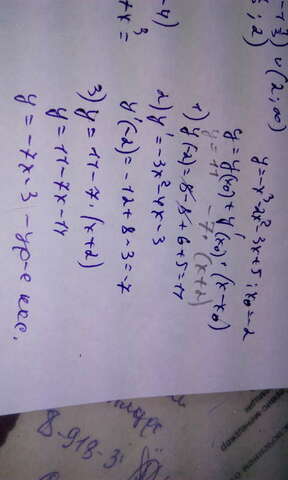 -1 3/2) ∪ (2; ∞)
; 2)
-4)
3
+x =
y = -x³-2x²-3x+5; x₀=-2
y = y(x₀) + y'(x₀)·(x-x₀)
y = 11 -7·(x+2)
1) y(-2)=8-8+6+5=11
2) y'=-3x²-4x-3
y'(-2) = -12+8-3=-7
3) y = 11-7·(x+2)
y = 11-7x-14
y = -7x-3 - ур-е кас.
8-913-3